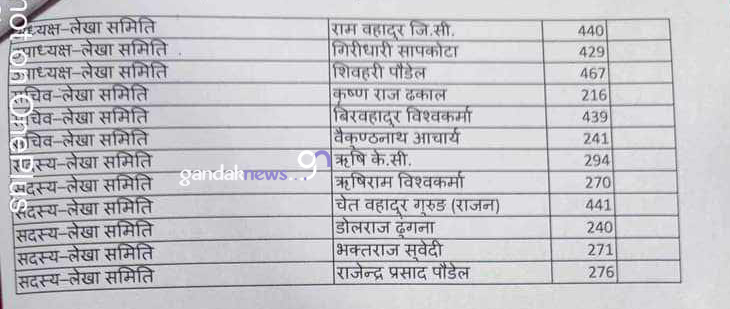 ध्यक्ष-लेखा समिति राम वहादुर जि.सी. 440
पाध्यक्ष-लेखा समिति गिरीधारी सापकोटा 429
पाध्यक्ष-लेखा समिति शिवहरी पौडेल 467
चिव-लेखा समिति कृष्ण राज ढकाल 216
चिव-लेखा समिति बिरवहादुर विश्वकर्मा 439
चिव-लेखा समिति वैकुण्ठनाथ आचार्य 241
सदस्य-लेखा समिति ऋषि के.सी. 294
सदस्य-लेखा समिति ऋषिराम विश्वकर्मा 270
सदस्य-लेखा समिति चेत वहादुर गुरुङ (राजन) 441
सदस्य-लेखा समिति डोलराज ढुंगना 240
सदस्य-लेखा समिति भक्तराज सुवेदी 271
सदस्य-लेखा समिति राजेन्द्र प्रसाद पौडेल 276
gandaknews...
not on OnePlus